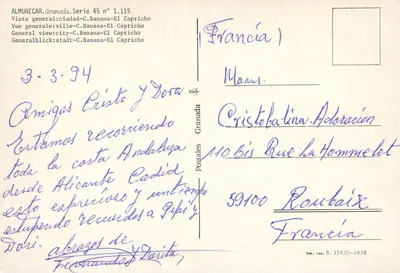 ALMUÑECAR.Granada.Serie 45 nº 1.115
Vista general:ciudad-C.Banana-El Capricho
Vue generale:ville-C.Banana-El Capricho
General view:city-C.Banana-El Capricho
Generalblick:stadt-C.Banana-El Capricho
3-3-94
Amigas Cristo y Dora
Estamos recorriendo
toda la costa Andaluza
desde Alicante Cadid
esto es precioso y un tiempo
estupendo recuerdos a Pepi y
Dori.
abrazos de
Fernando y Dorita,
Postales Granada
(Francia)
Cristobalina Adoración
110 Bis Rue La Hommelet
59100 Roubaix
Francia
Dep. Leg. B. 35920-1978